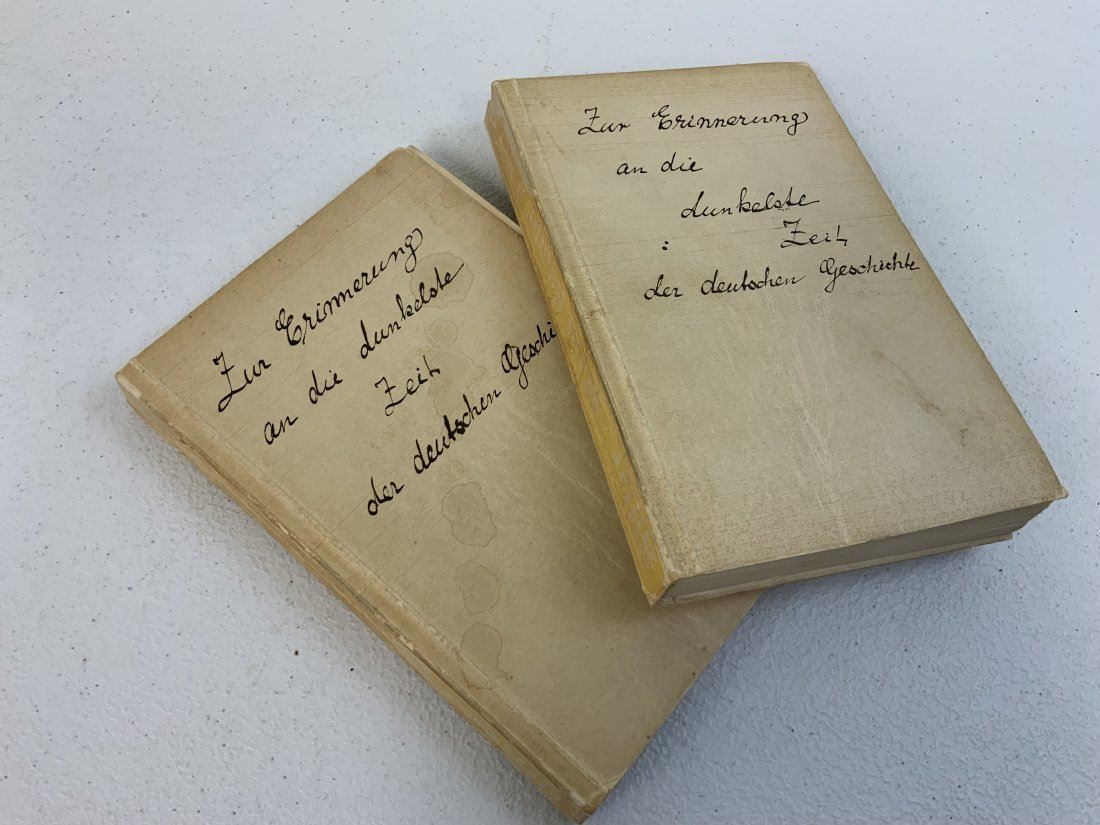 Zur Erinnerung
an die dunkelste
Zeit
der deutschen Geschi
Zur Erinnerung
an die
dunkelste
: Zeit
der deutschen Geschichte